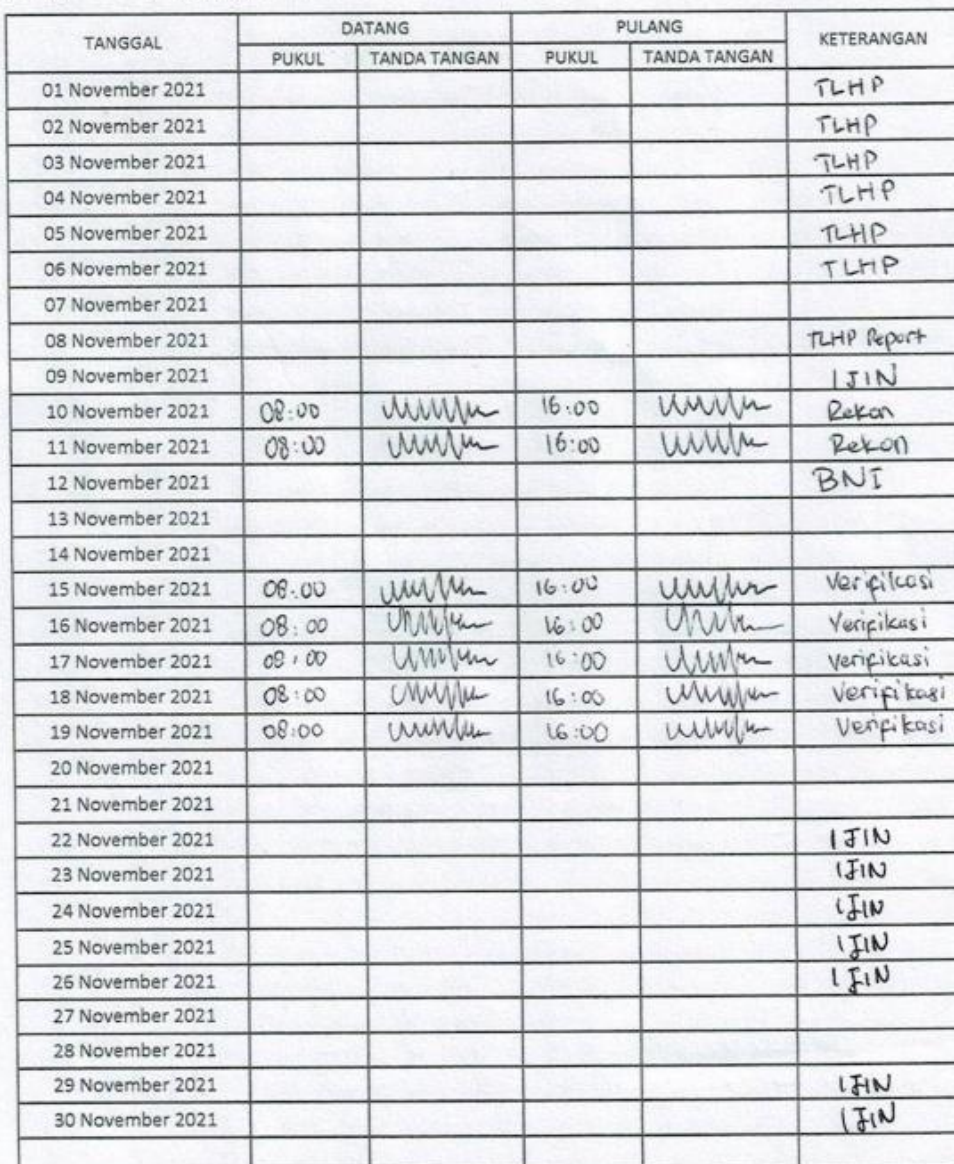 TANGGAL DATANG PULANG KETERANGAN
PUKUL TANDA TANGAN PUKUL TANDA TANGAN
01 November 2021 TLHP
02 November 2021 TLHP
03 November 2021 TLHP
04 November 2021 TLHP
05 November 2021 TLHP
06 November 2021 TLHP
07 November 2021
08 November 2021 TLHP Report
09 November 2021 IJIN
10 November 2021 08:00 16:00 Rekon
11 November 2021 08:00 16:00 Rekon
12 November 2021 BNI
13 November 2021
14 November 2021
15 November 2021 08:00 16:00 Verifikasi
16 November 2021 08:00 16:00 Verifikasi
17 November 2021 08:00 16:00 verifikasi
18 November 2021 08:00 16:00 Verifikasi
19 November 2021 08:00 16:00 Verifikasi
20 November 2021
21 November 2021
22 November 2021 IJIN
23 November 2021 IJIN
24 November 2021 IJIN
25 November 2021 IJIN
26 November 2021 IJIN
27 November 2021
28 November 2021
29 November 2021 IJIN
30 November 2021 IJIN